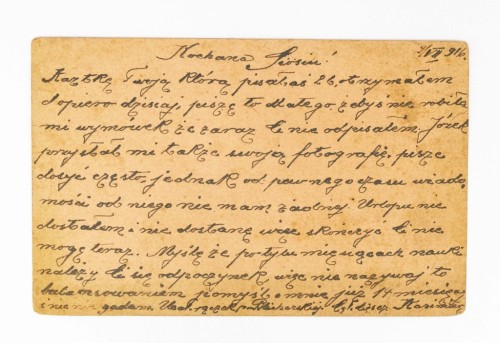 Kochana Ziosiu! 4/VII 916.
Kaztkę Twoją którą pisałaś 26, otrzymałem
dopiero dzisiaj, piszę to dlatego żebyś nie robiła
mi wymówek że zaraz Ci nie odpisałem. Józek
przysłał mi także swoją fotografię, pisze
dosyć często, jednak od pewnego czasu wiado
mości od niego nie mam żadnej. Urlopu nie
dostałem i nie dostanę więc skończyć Ci nie
mogę teraz. Myślę że po tylu miesiącach nauki
należy Ci się odpoczynek, więc nie nazywaj to
balansowaniem pomyśl o mnie już 14 miesięcy
i nie